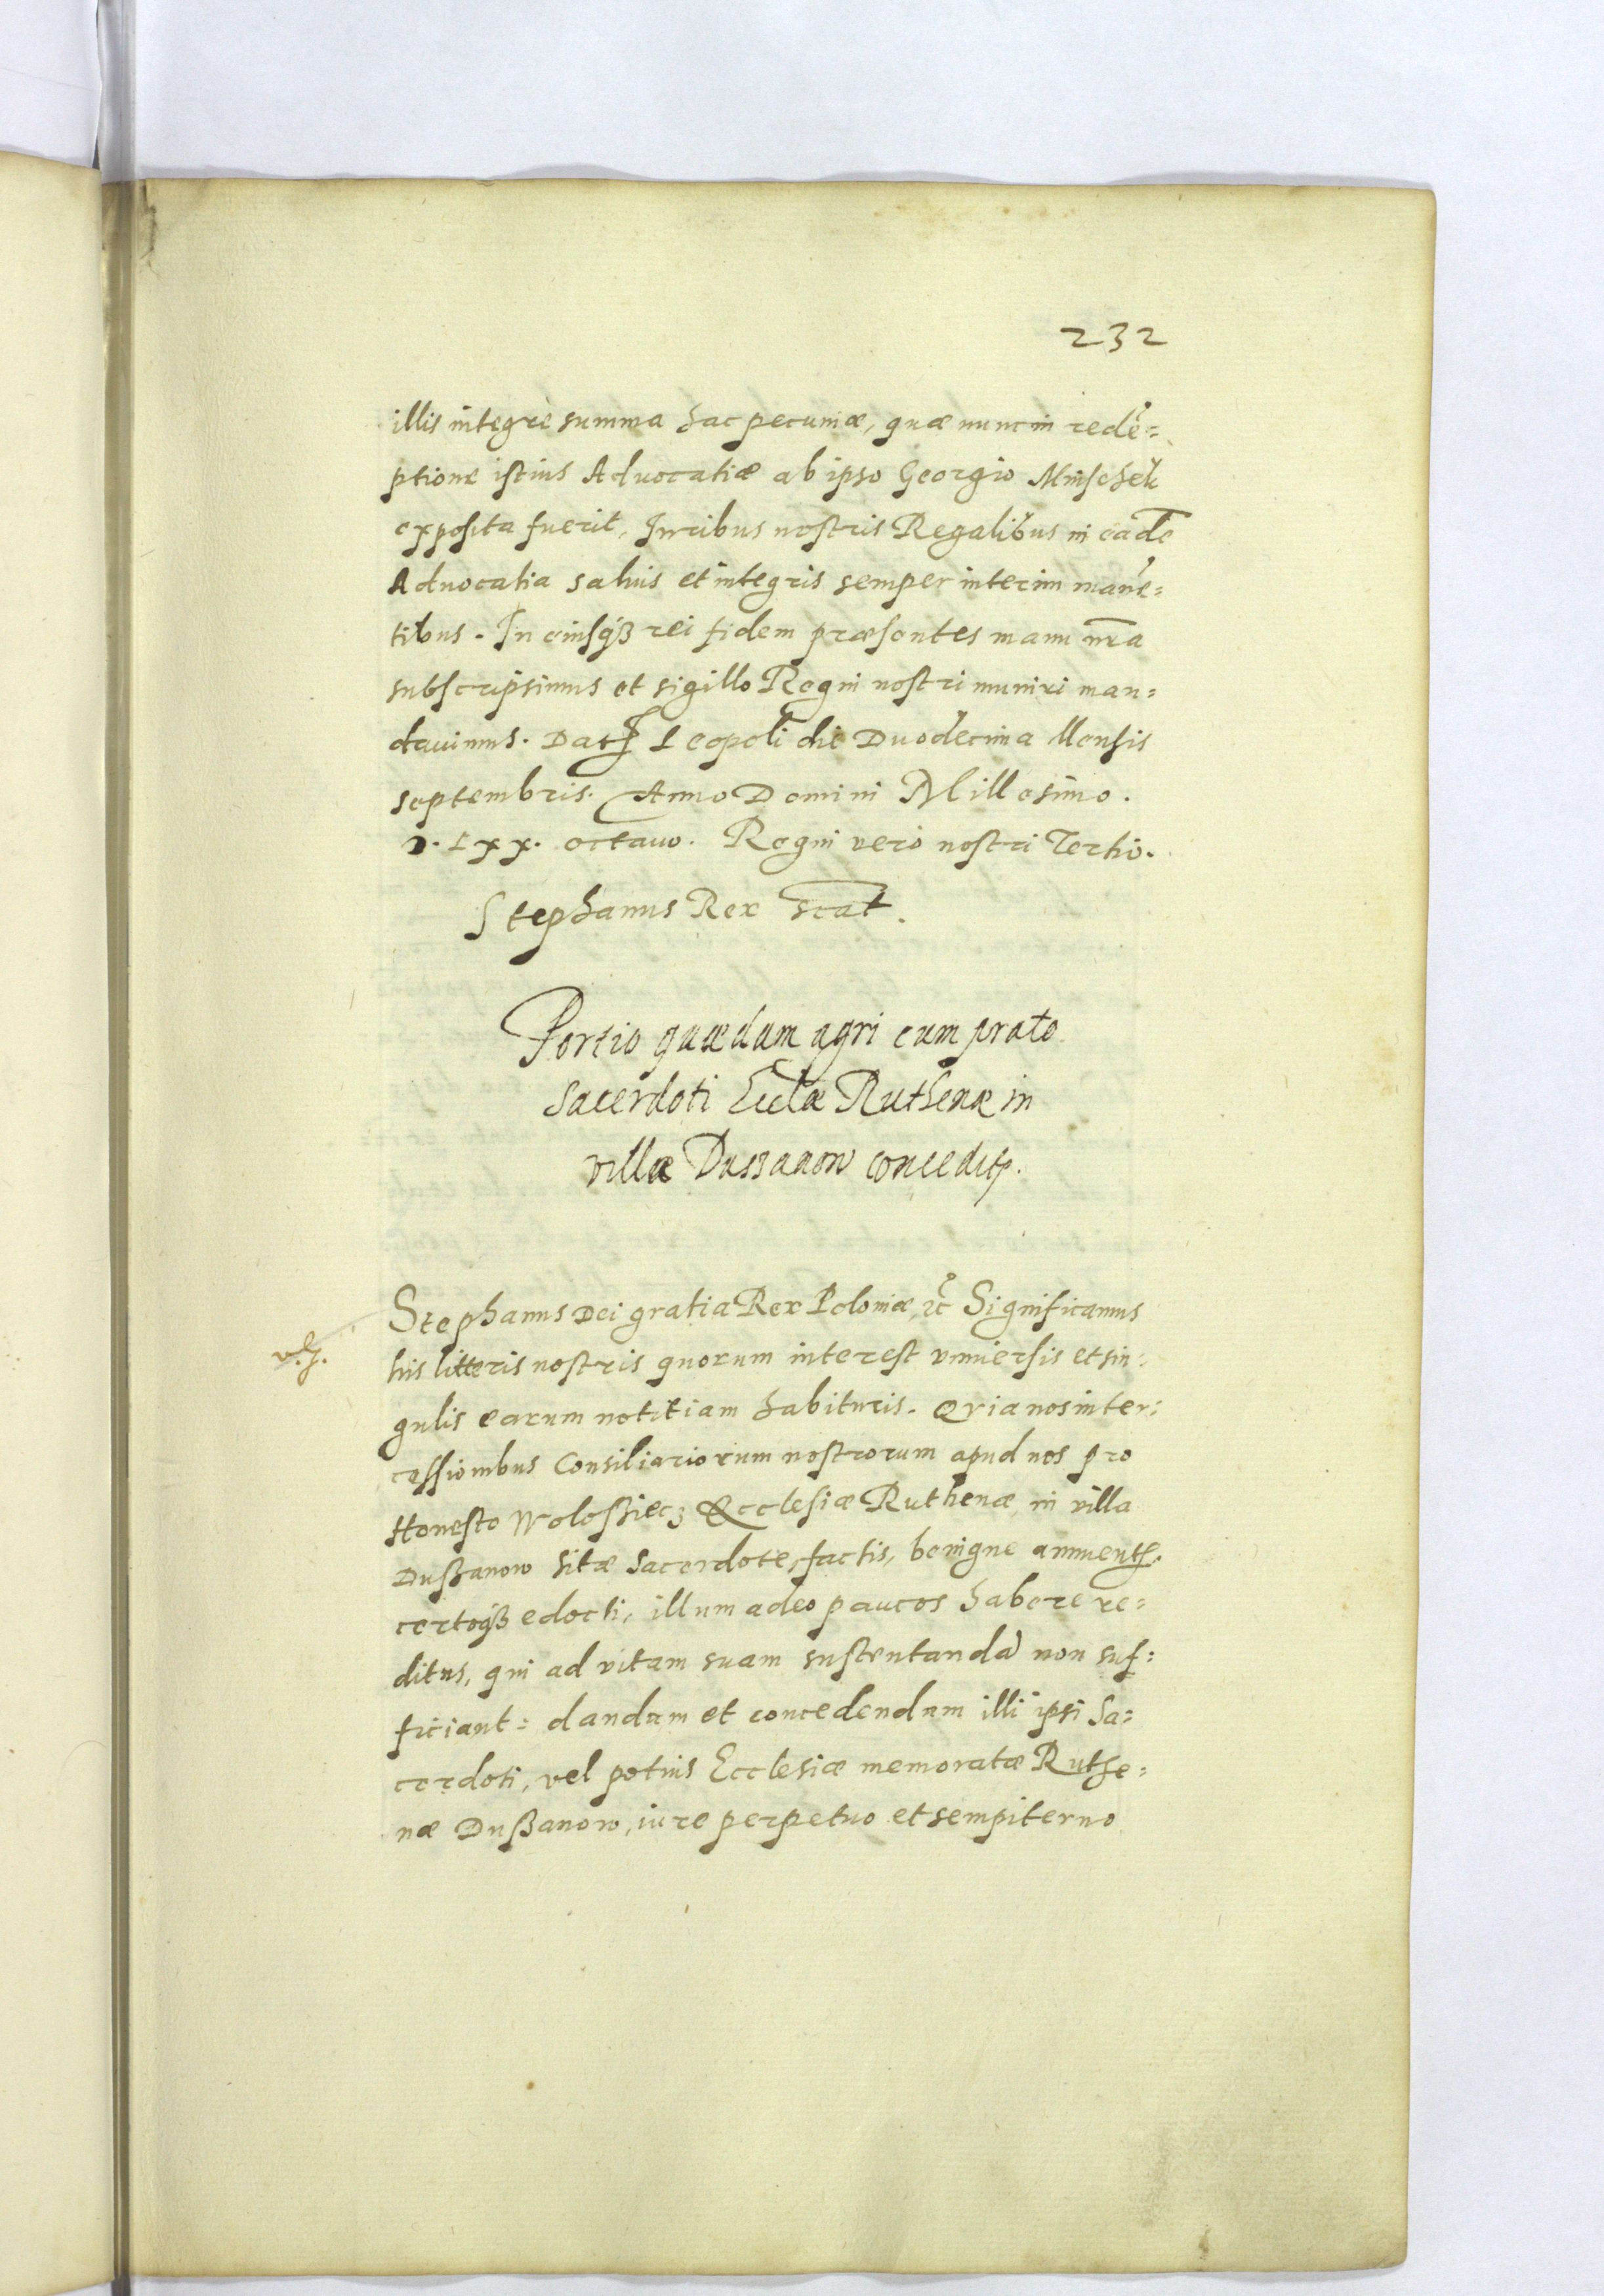 232
illis integrè summa hac pecuniæ, quæ nunc in redē=
ptione istius Aduocatiæ ab ipso Georgio Mnischek
exposita fuerit, Iuribus nostris Regalibus in eadē
Aduocatia saluis et integris semper interim manē=
tibus. In cuiusqß rei fidem præsentes manu nr̄a
subscripsimus et sigillo Regni nostri muniri man=
dauimus. Datꝭ Leopoli die Duodecima Mensis
septembris. Anno Domini Millesimo.
D. Lxx. octauo. Regni vero nostri Tertio.
Stephanus Rex scat.
Portio quædam agri cum prato
sacerdoti Eccl̄æ Ruthenæ in
villa Dussanow conceditꝭ.
Stephanus Dei gratia Rex Poloniæ, ⁊c̄ Significamus
his litteris nostris quorum interest vniuersis et sin=
gulis earum notitiam habituris. Quia nos inter=
cessionibus Consiliariorum nostrorum apud nos pro
Honesto Woloßiecz Ecclesiæ Ruthenæ, in villa
Dußanow sitæ Sacerdote, factis, benigne annuentꝭ,
certoqß edocti, illum adeo paucos habere re=
ditus, qui ad vitam suam sustentandā non suf=
ficiant: dandum et concedendum illi ipsi Sa=
cerdoti, vel potius Ecclesiæ memoratæ Ruthe=
næ Dußanow, iure perpetuo et sempiterno